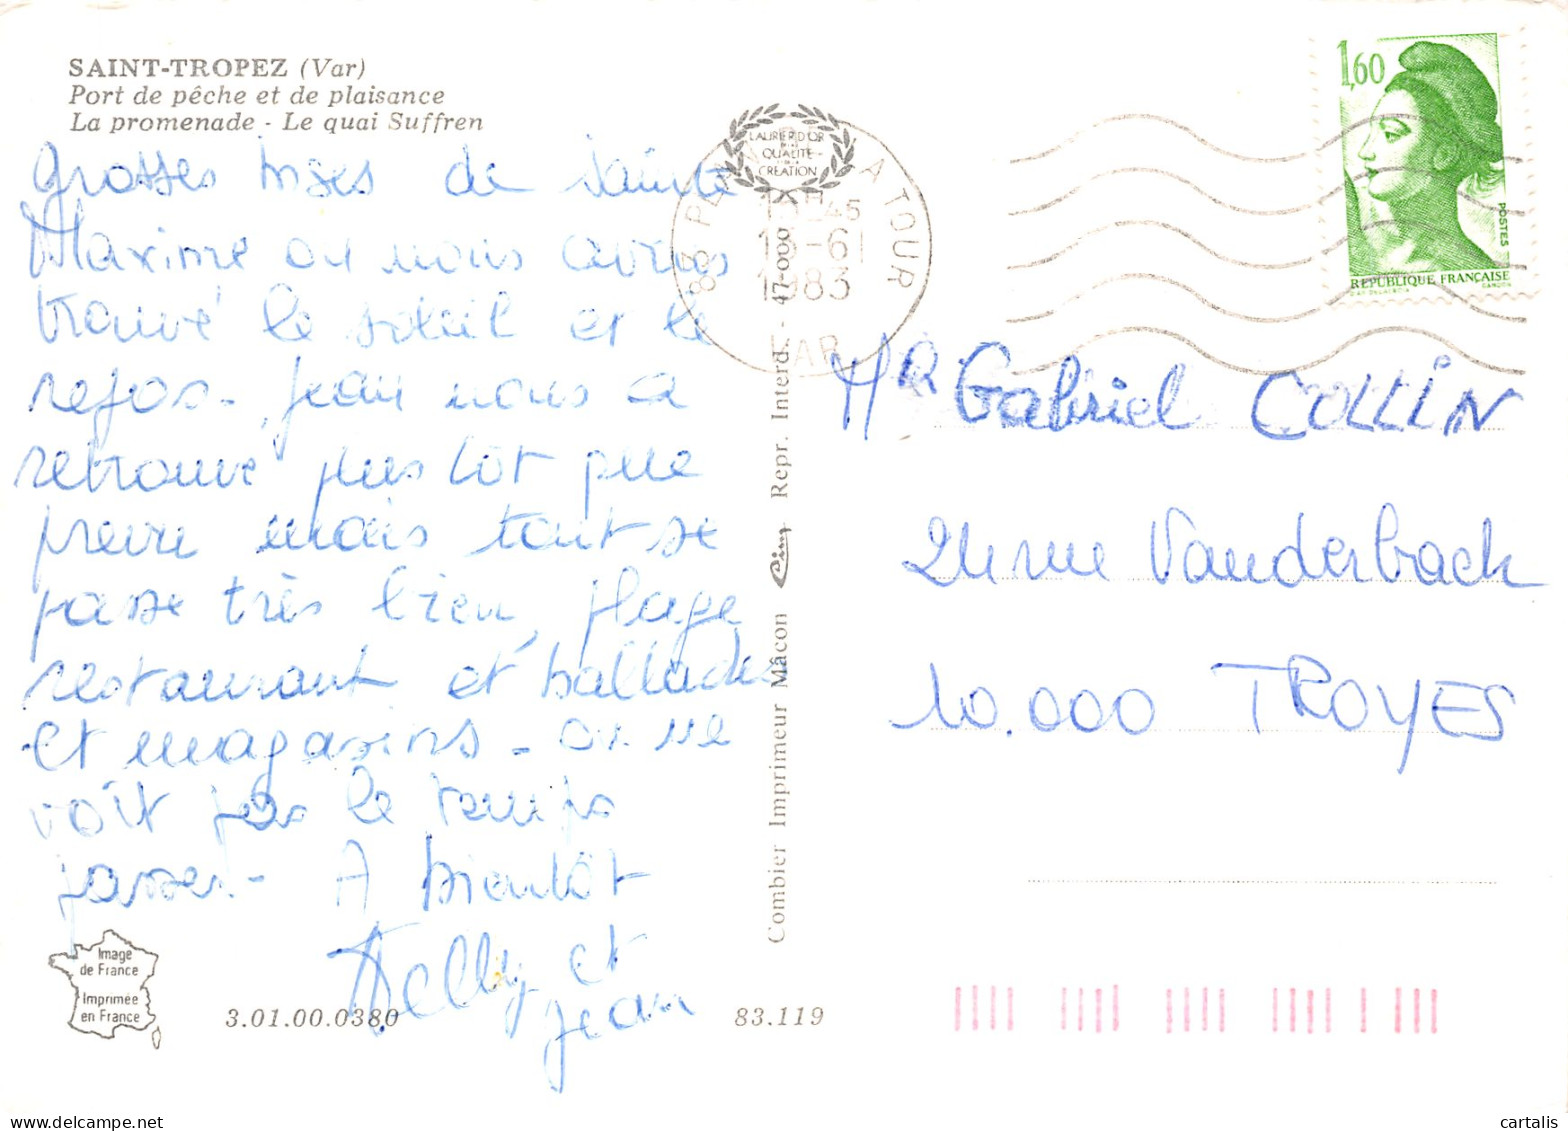 SAINT-TROPEZ (Var)
Port de pêche et de plaisance
La promenade - Le quai Suffren
Grosses bises de Sainte
Maxime où nous avons
trouvé le soleil et le
repos - Jean nous a
retrouvé plus tôt que
prevu mais tout se
passe très bien, plage
restaurant et ballades
et magasins - on ne
voit pas le temps
passer - A bientôt
Nelly et
Jean
Image
de France
Imprimée
en France
3.01.00.0380
83.119
Combier Imprimeur Mâcon Cim Repr. Interd. - 47-000
LAURIER D'OR
QUALITÉ
CREATION
83 A TOUR
45
13-6
1983
VAR
1,60
POSTES
REPUBLIQUE FRANÇAISE
GANDON
Mr Gabriel COLLIN
24 rue Vanderbach
10.000 TROYES